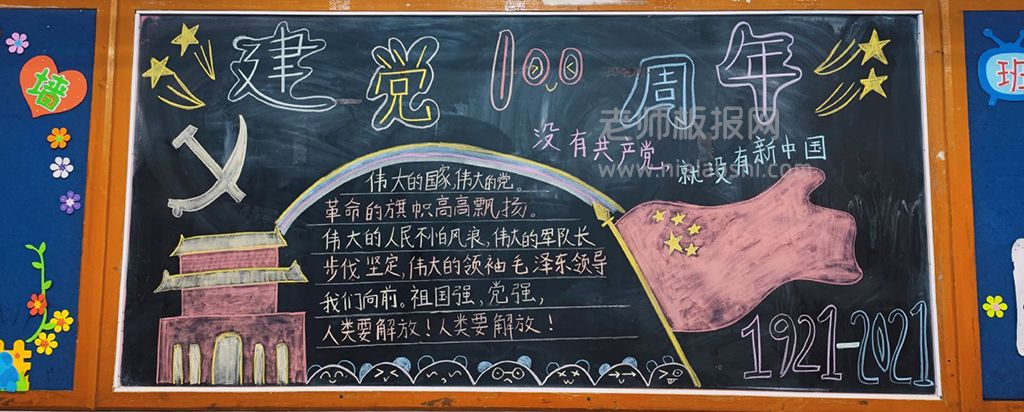 建党100周年
没有共产党,就没有新中国
伟大的国家,伟大的党。
革命的旗帜高高飘扬。
伟大的人民不怕风浪,伟大的军队长
步伐坚定,伟大的领袖毛泽东领导
我们向前。祖国强、党强,
人类要解放!人类要解放!
1921-2021
墙
班
老师板报网